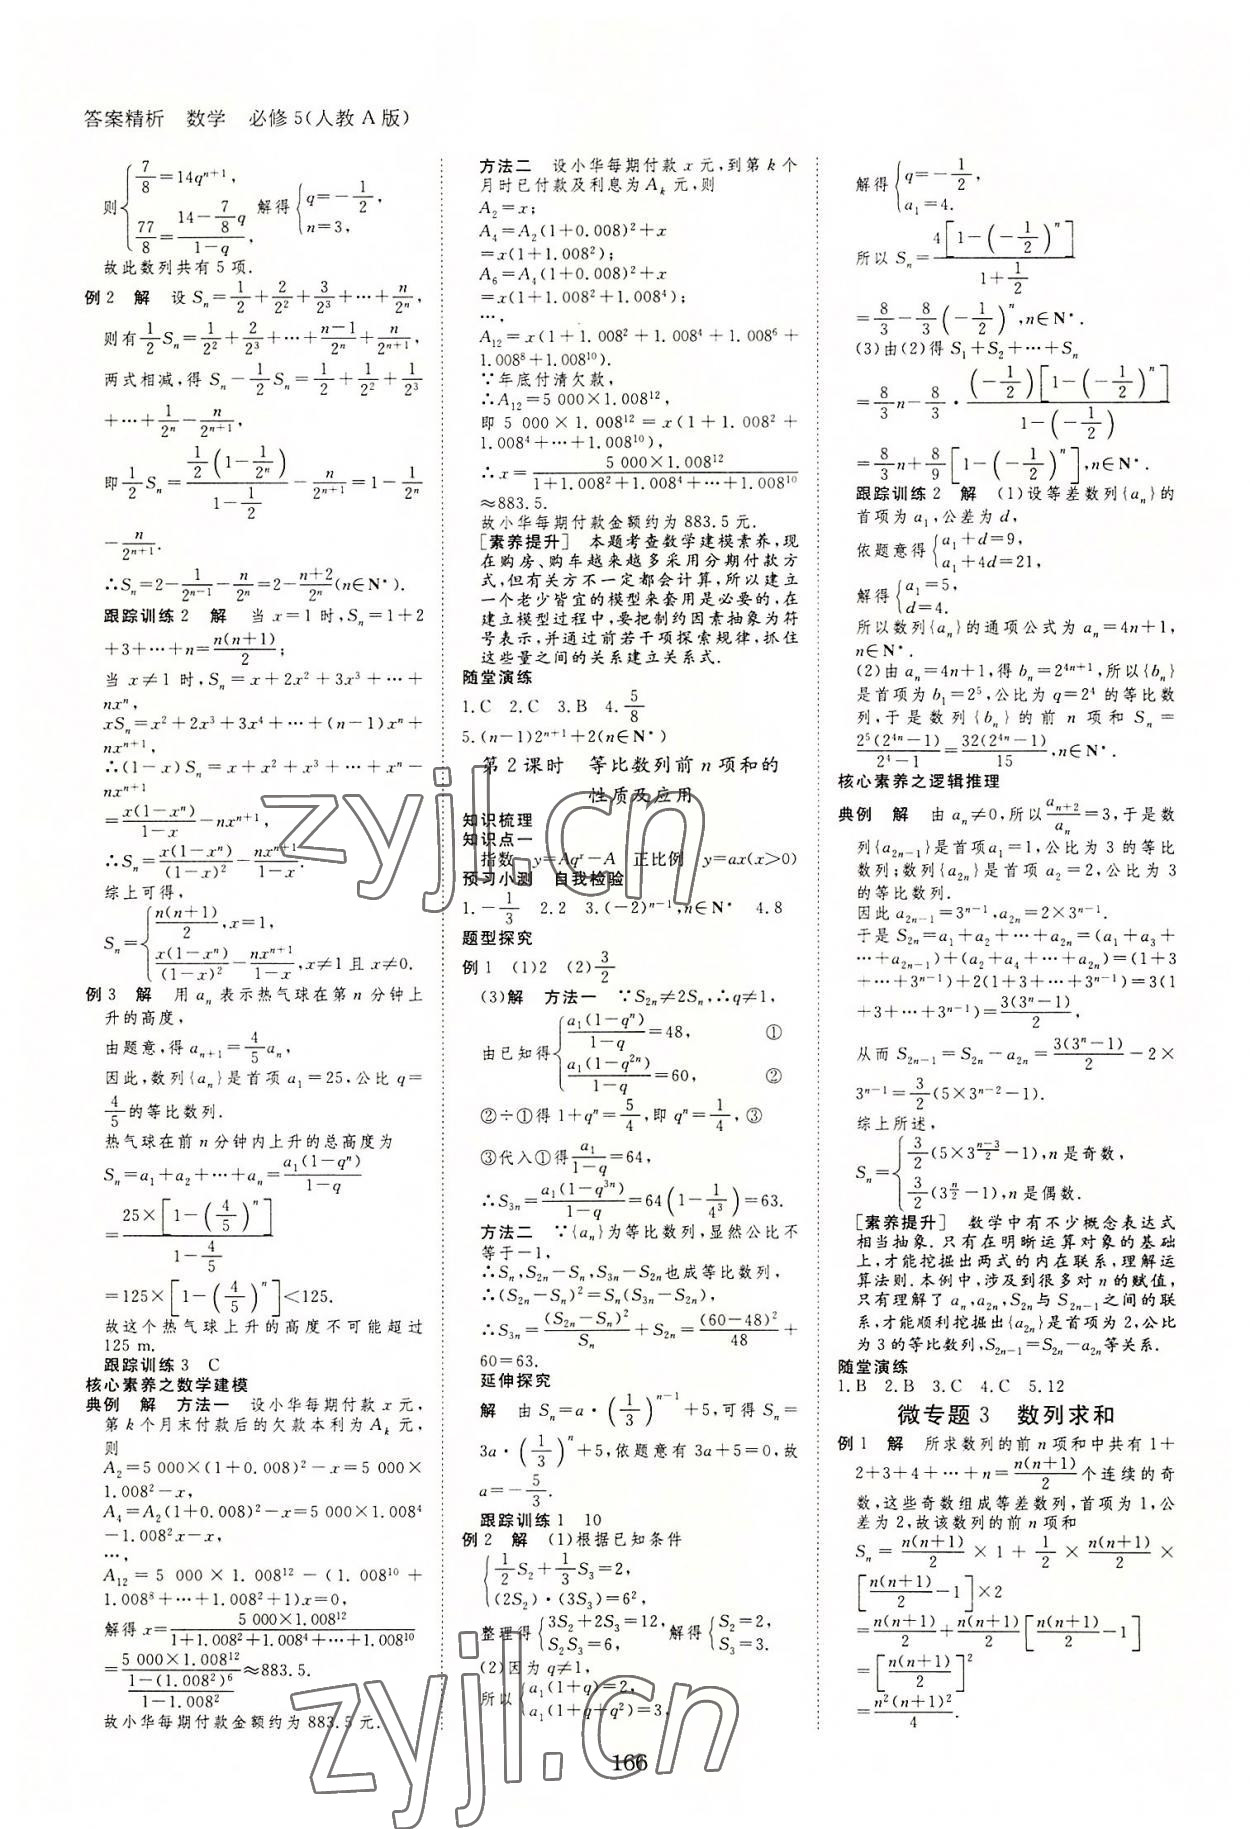 答案精析　数学　必修5(人教A版)
则{7/8=14qⁿ⁺¹, 77/8=(14-7/8 q)/(1-q), 解得{q=-1/2, n=3,
故此数列共有5项.
例2　解　设Sₙ=1/2+2/2²+3/2³+…+n/2ⁿ,
则有1/2 Sₙ=1/2²+2/2³+…+(n-1)/2ⁿ+n/2ⁿ⁺¹,
两式相减,得Sₙ-1/2 Sₙ=1/2+1/2²+1/2³
+…+1/2ⁿ-n/2ⁿ⁺¹,
即1/2 Sₙ=[1/2(1-1/2ⁿ)]/(1-1/2)-n/2ⁿ⁺¹=1-1/2ⁿ
-n/2ⁿ⁺¹.
∴Sₙ=2-1/2ⁿ⁻¹-n/2ⁿ=2-(n+2)/2ⁿ(n∈N*).
跟踪训练2　解　当x=1时,Sₙ=1+2
+3+…+n=n(n+1)/2;
当x≠1时,Sₙ=x+2x²+3x³+…+
nxⁿ,
xSₙ=x²+2x³+3x⁴+…+(n-1)xⁿ+
nxⁿ⁺¹,
∴(1-x)Sₙ=x+x²+x³+…+xⁿ-
nxⁿ⁺¹
=x(1-xⁿ)/(1-x)-nxⁿ⁺¹,
∴Sₙ=x(1-xⁿ)/(1-x)²-nxⁿ⁺¹/(1-x).
综上可得,
Sₙ={n(n+1)/2,x=1, x(1-xⁿ)/(1-x)²-nxⁿ⁺¹/(1-x),x≠1且x≠0.
例3　解　用aₙ表示热气球在第n分钟上
升的高度,
由题意,得aₙ₊₁=4/5 aₙ,
因此,数列{aₙ}是首项a₁=25,公比q=
4/5的等比数列.
热气球在前n分钟内上升的总高度为
Sₙ=a₁+a₂+…+aₙ=a₁(1-qⁿ)/(1-q)
=25×[1-(4/5)ⁿ]/(1-4/5)
=125×[1-(4/5)ⁿ]<125.
故这个热气球上升的高度不可能超过
125 m.
跟踪训练3　C
核心素养之数学建模
典例　解　方法一　设小华每期付款x元,
第k个月末付款后的欠款本利为Aₖ元,
则
A₂=5 000×(1+0.008)²-x=5 000×
1.008²-x,
A₄=A₂(1+0.008)²-x=5 000×1.008⁴
-1.008²x-x,
…,
A₁₂=5 000×1.008¹²-(1.008¹⁰+
1.008⁸+…+1.008²+1)x=0,
解得x=5 000×1.008¹²/(1+1.008²+1.008⁴+…+1.008¹⁰)
=5 000×1.008¹²/{[1-(1.008²)⁶]/(1-1.008²)}≈883.5.
故小华每期付款金额约为883.5元.
方法二　设小华每期付款x元,到第k个
月时已付款及利息为Aₖ元,则
A₂=x;
A₄=A₂(1+0.008)²+x
=x(1+1.008²);
A₆=A₄(1+0.008)²+x
=x(1+1.008²+1.008⁴);
…,
A₁₂=x(1+1.008²+1.008⁴+1.008⁶+
1.008⁸+1.008¹⁰).
∵年底付清欠款,
∴A₁₂=5 000×1.008¹²,
即5 000×1.008¹²=x(1+1.008²+
1.008⁴+…+1.008¹⁰),
∴x=5 000×1.008¹²/(1+1.008²+1.008⁴+…+1.008¹⁰)
≈883.5.
故小华每期付款金额约为883.5元.
[素养提升]　本题考查数学建模素养,现
在购房、购车越来越多采用分期付款方
式,但有关方不一定都会计算,所以建立
一个老少皆宜的模型来套用是必要的,在
建立模型过程中,要把制约因素抽象为符
号表示,并通过前若干项探索规律,抓住
这些量之间的关系建立关系式.
随堂演练
1.C　2.C　3.B　4.5/8
5.(n-1)2ⁿ⁺¹+2(n∈N*)
第2课时　等比数列前n项和的
性质及应用
知识梳理
知识点一
指数　y=Aqˣ-A　正比例　y=ax(x>0)
预习小测　自我检验
1.-1/3　2.2　3.(-2)ⁿ⁻¹,n∈N*　4.8
题型探究
例1　(1)2　(2)3/2
(3)解　方法一　∵S₂ₙ≠2Sₙ,∴q≠1,
由已知得{a₁(1-qⁿ)/(1-q)=48, ① a₁(1-q²ⁿ)/(1-q)=60, ②
②÷①得1+qⁿ=5/4,即qⁿ=1/4,③
③代入①得a₁/(1-q)=64,
∴S₃ₙ=a₁(1-q³ⁿ)/(1-q)=64(1-1/4³)=63.
方法二　∵{aₙ}为等比数列,显然公比不
等于-1,
∴Sₙ,S₂ₙ-Sₙ,S₃ₙ-S₂ₙ也成等比数列,
∴(S₂ₙ-Sₙ)²=Sₙ(S₃ₙ-S₂ₙ),
∴S₃ₙ=(S₂ₙ-Sₙ)²/Sₙ+S₂ₙ=(60-48)²/48+
60=63.
延伸探究
解　由Sₙ=a·(1/3)ⁿ⁻¹+5,可得Sₙ=
3a·(1/3)ⁿ+5,依题意有3a+5=0,故
a=-5/3.
跟踪训练1　10
例2　解　(1)根据已知条件
{1/2 S₂+1/3 S₃=2, (2S₂)·(3S₃)=6²,
整理得{3S₂+2S₃=12, S₂S₃=6, 解得{S₂=2, S₃=3.
(2)因为q≠1,
所以{a₁(1+q)=2, a₁(1+q+q²)=3,
解得{q=-1/2, a₁=4.
所以Sₙ=4[1-(-1/2)ⁿ]/(1+1/2)
=8/3-8/3(-1/2)ⁿ,n∈N*.
(3)由(2)得S₁+S₂+…+Sₙ
=8/3 n-8/3·(-1/2)[1-(-1/2)ⁿ]/[1-(-1/2)]
=8/3 n+8/9[1-(-1/2)ⁿ],n∈N*.
跟踪训练2　解　(1)设等差数列{aₙ}的
首项为a₁,公差为d,
依题意得{a₁+d=9, a₁+4d=21,
解得{a₁=5, d=4.
所以数列{aₙ}的通项公式为aₙ=4n+1,
n∈N*.
(2)由aₙ=4n+1,得bₙ=2⁴ⁿ⁺¹,所以{bₙ}
是首项为b₁=2⁵,公比为q=2⁴的等比数
列,于是数列{bₙ}的前n项和Sₙ=
2⁵(2⁴ⁿ-1)/(2⁴-1)=32(2⁴ⁿ-1)/15,n∈N*.
核心素养之逻辑推理
典例　解　由aₙ≠0,所以aₙ₊₂/aₙ=3,于是数
列{a₂ₙ₋₁}是首项a₁=1,公比为3的等比
数列;数列{a₂ₙ}是首项a₂=2,公比为3
的等比数列.
因此a₂ₙ₋₁=3ⁿ⁻¹,a₂ₙ=2×3ⁿ⁻¹.
于是S₂ₙ=a₁+a₂+…+a₂ₙ=(a₁+a₃+
…+a₂ₙ₋₁)+(a₂+a₄+…+a₂ₙ)=(1+3
+…+3ⁿ⁻¹)+2(1+3+…+3ⁿ⁻¹)=3(1
+3+…+3ⁿ⁻¹)=3(3ⁿ-1)/2,
从而S₂ₙ₋₁=S₂ₙ-a₂ₙ=3(3ⁿ-1)/2-2×
3ⁿ⁻¹=3/2(5×3ⁿ⁻²-1).
综上所述,
Sₙ={3/2(5×3^((n-3)/2)-1),n是奇数, 3/2(3^(n/2)-1),n是偶数.
[素养提升]　数学中有不少概念表达式
相当抽象.只有在明晰运算对象的基础
上,才能挖掘出两式的内在联系,理解运
算法则.本例中,涉及到很多对n的赋值,
只有理解了aₙ,a₂ₙ,S₂ₙ与S₂ₙ₋₁之间的联
系,才能顺利挖掘出{a₂ₙ}是首项为2,公比
为3的等比数列,S₂ₙ₋₁=S₂ₙ-a₂ₙ等关系.
随堂演练
1.B　2.B　3.C　4.C　5.12
微专题3　数列求和
例1　解　所求数列的前n项和中共有1+
2+3+4+…+n=n(n+1)/2个连续的奇
数,这些奇数组成等差数列,首项为1,公
差为2,故该数列的前n项和
Sₙ=n(n+1)/2×1+1/2×n(n+1)/2×
[n(n+1)/2-1]×2
=n(n+1)/2+n(n+1)/2[n(n+1)/2-1]
=[n(n+1)/2]²
=n²(n+1)²/4.
166
zyjl.cn
zyjl.cn